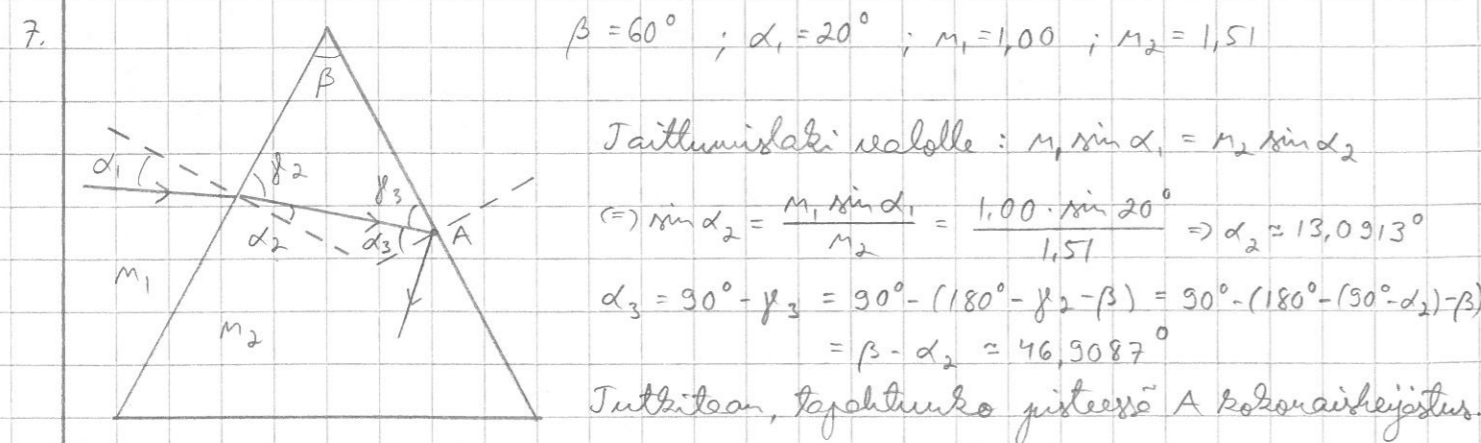 7.
β = 60° ; α₁ = 20° ; n₁ = 1,00 ; n₂ = 1,51
β
Taittumislaki valolle : n₁ sin α₁ = n₂ sin α₂
α₁
γ₂
γ₃
(=) sin α₂ = n₁ sin α₁ / n₂ = 1,00 · sin 20° / 1,51 => α₂ ≈ 13,0913°
α₂
α₃
A
n₁
α₃ = 90° - γ₃ = 90° - (180° - γ₂ - β) = 90° - (180° - (90° - α₂) - β)
n₂
= β - α₂ ≈ 46,9087°
Tutkitaan, tapahtuuko pisteessä A kokonaisheijastus.